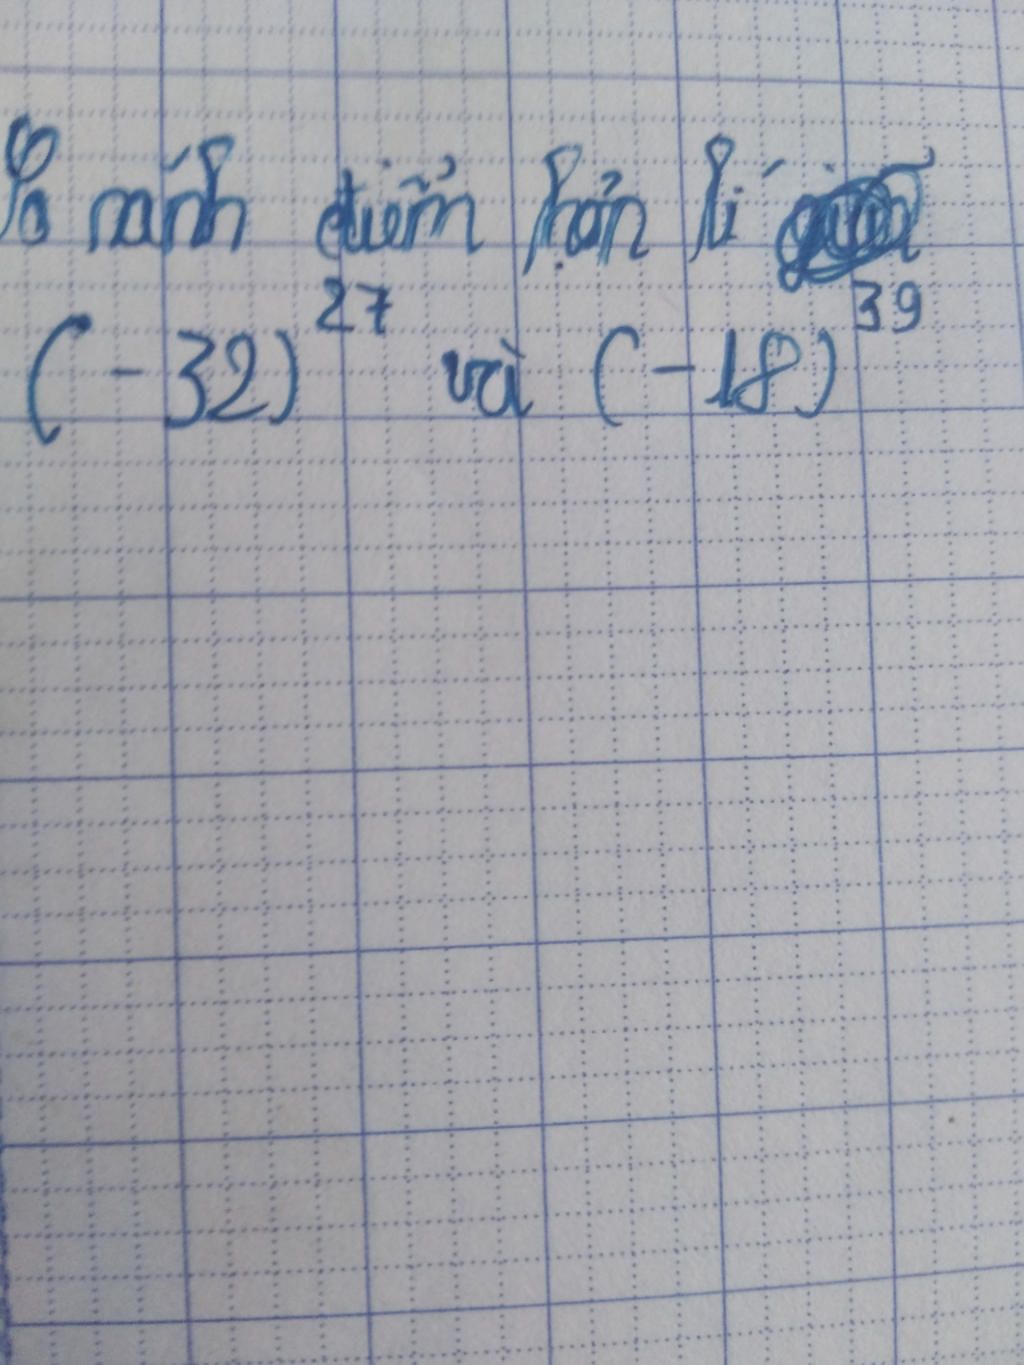 So sánh điểm hữn lí
(-32)^27 và (-18)^39